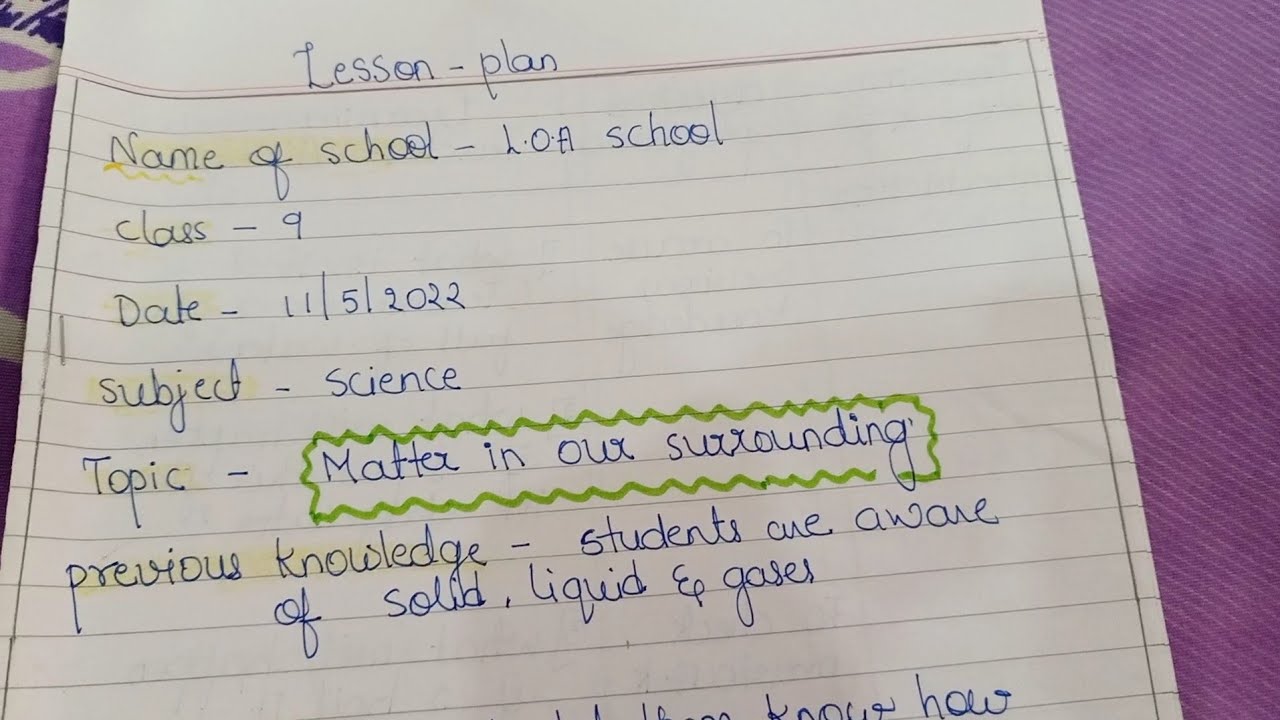 Lesson - plan
Name of school - L.O.A school
class - 9
Date - 11/5/2022
subject - science
Topic - Matter in our surrounding
previous knowledge - students are aware
of solid, liquid & gases
know how